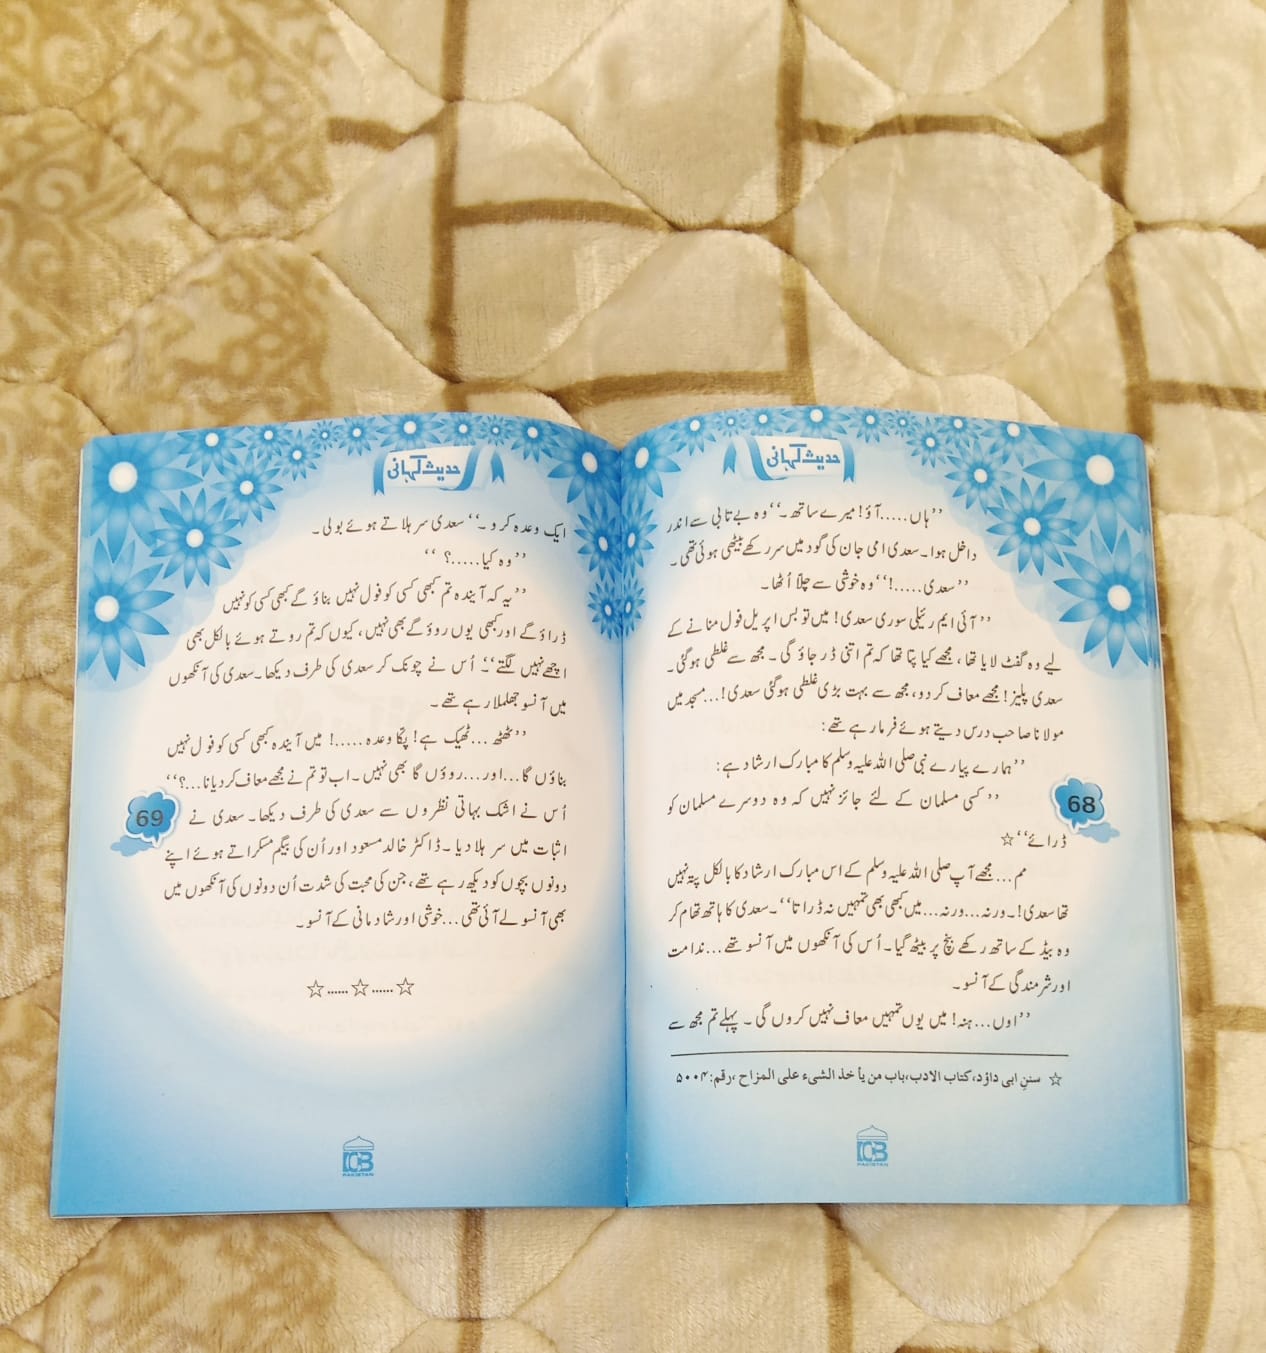 حدیث کہانی
’’ہاں.....آؤ! میرے ساتھ۔‘‘ وہ بے تابی سے اندر
داخل ہوا۔ سعدی امی جان کی گود میں سر رکھے بیٹھی ہوئی تھی۔
’’سعدی.....!‘‘ وہ خوشی سے چلّا اُٹھا۔
’’آئی ایم رئیلی سوری سعدی! میں تو بس اپریل فول منانے کے
لیے وہ گفٹ لایا تھا، مجھے کیا پتا تھا کہ تم اتنی ڈر جاؤ گی۔ مجھ سے غلطی ہوگئی۔
سعدی پلیز! مجھے معاف کر دو، مجھ سے بہت بڑی غلطی ہوگئی سعدی!...مسجد میں
مولانا صاحب درس دیتے ہوئے فرما رہے تھے:
’’ہمارے پیارے نبی صلی اللہ علیہ وسلم کا مبارک ارشاد ہے:
’’کسی مسلمان کے لئے جائز نہیں کہ وہ دوسرے مسلمان کو
ڈرائے‘‘☆
مم...مجھے آپ صلی اللہ علیہ وسلم کے اس مبارک ارشاد کا بالکل پتہ نہیں
تھا سعدی!۔ ورنہ...ورنہ...میں کبھی بھی تمہیں نہ ڈراتا‘‘۔ سعدی کا ہاتھ تھام کر
وہ بیڈ کے ساتھ رکھے بنچ پر بیٹھ گیا۔ اُس کی آنکھوں میں آنسو تھے...ندامت
اور شرمندگی کے آنسو۔
’’اوں...ہنہ! میں یوں تمہیں معاف نہیں کروں گی۔ پہلے تم مجھ سے
☆ سنن ابی داؤد، کتاب الادب، باب من یأخذ الشیء علی المزاح، رقم: ۵۰۰۴
68
ICB
PAKISTAN
حدیث کہانی
ایک وعدہ کرو۔‘‘ سعدی سر ہلاتے ہوئے بولی۔
’’وہ کیا.....؟‘‘
’’یہ کہ آیندہ تم کبھی کسی کو فول نہیں بناؤ گے کبھی کسی کو نہیں
ڈراؤ گے اور کبھی یوں روؤ گے بھی نہیں، کیوں کہ تم روتے ہوئے بالکل بھی
اچھے نہیں لگتے‘‘۔ اُس نے چونک کر سعدی کی طرف دیکھا۔ سعدی کی آنکھوں
میں آنسو جھلملا رہے تھے۔
’’ٹھٹھ...ٹھیک ہے! پکّا وعدہ.....! میں آیندہ کبھی کسی کو فول نہیں
بناؤں گا...اور...روؤں گا بھی نہیں۔ اب تو تم نے مجھے معاف کر دیا نا...؟‘‘
اُس نے اشک بہاتی نظروں سے سعدی کی طرف دیکھا۔ سعدی نے
اثبات میں سر ہلا دیا۔ ڈاکٹر خالد مسعود اور اُن کی بیگم مسکراتے ہوئے اپنے
دونوں بچوں کو دیکھ رہے تھے، جن کی محبت کی شدت اُن دونوں کی آنکھوں میں
بھی آنسو لے آئی تھی...خوشی اور شادمانی کے آنسو۔
☆......☆......☆
69
ICB
PAKISTAN